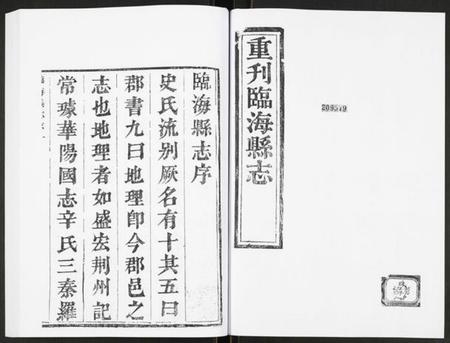 重刋臨海縣志
209519
臨海縣志序
史氏流别厥名有十其五曰
郡書九曰地理卽今郡邑之
志也地理者如盛宏荆州記
常璩華陽國志辛氏三秦羅